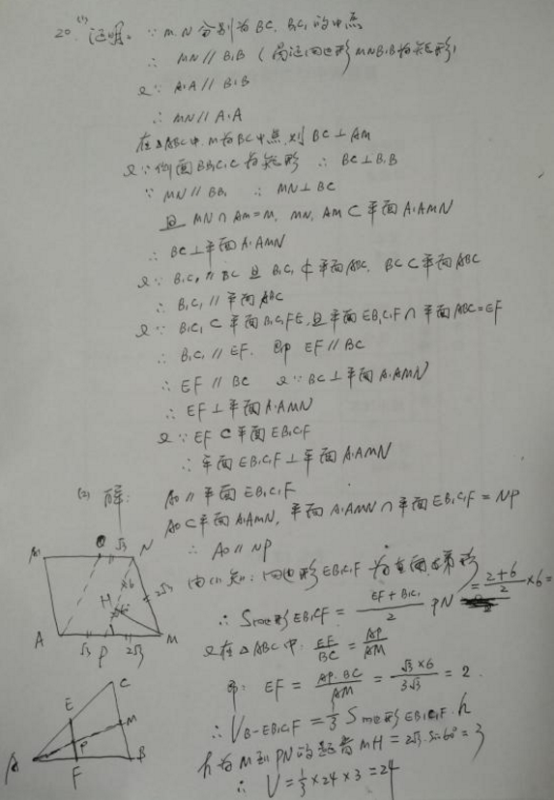 20.(1)证明。∵ M.N 分别为 BC. B₁C₁ 的中点
∴ MN // B₁B (同证四边形 MNB₁B为矩形)
又∵ A₁A // B₁B
∴ MN // A₁A
在△ABC中. M为BC中点. 则 BC⊥AM
又∵侧面BB₁C₁C为矩形 ∴ BC⊥B₁B
∵ MN // BB₁ ∴ MN⊥BC
且 MN∩AM=M. MN, AM⊂平面A₁AMN
∴ BC⊥平面A₁AMN
又∵ B₁C₁ // BC 且 B₁C₁⊄平面ABC. BC⊂平面ABC
∴ B₁C₁ // 平面ABC
又∵ B₁C₁⊂平面B₁C₁FE, 且平面EB₁C₁F∩平面ABC=EF
∴ B₁C₁ // EF. 即 EF // BC
∴ EF // BC 又∵ BC⊥平面A₁AMN
∴ EF⊥平面A₁AMN
又∵ EF⊂平面EB₁C₁F
∴ 平面EB₁C₁F⊥平面A₁AMN
(2) 解: AO // 平面EB₁C₁F
AO⊂平面A₁AMN, 平面A₁AMN∩平面EB₁C₁F=NP
∴ AO // NP
由(1)知: 四边形EB₁C₁F为 梯形
∴ S四边形EB₁C₁F = (EF+B₁C₁)/2 PN = (2+6)/2 ×6 =
又在△ABC中. EF/BC = AP/AM
即: EF = AP·BC/AM = √3×6/3√3 = 2.
∴ V B-EB₁C₁F = 1/3 S四边形EB₁C₁F·h
h为M到PN的距离 MH=2√3·sin60°=3
∴ V = 1/3×24×3=24
A₁ O √3 N
6 2√3
H
60°
A √3 P 2√3 M
C
E M
P
A F B